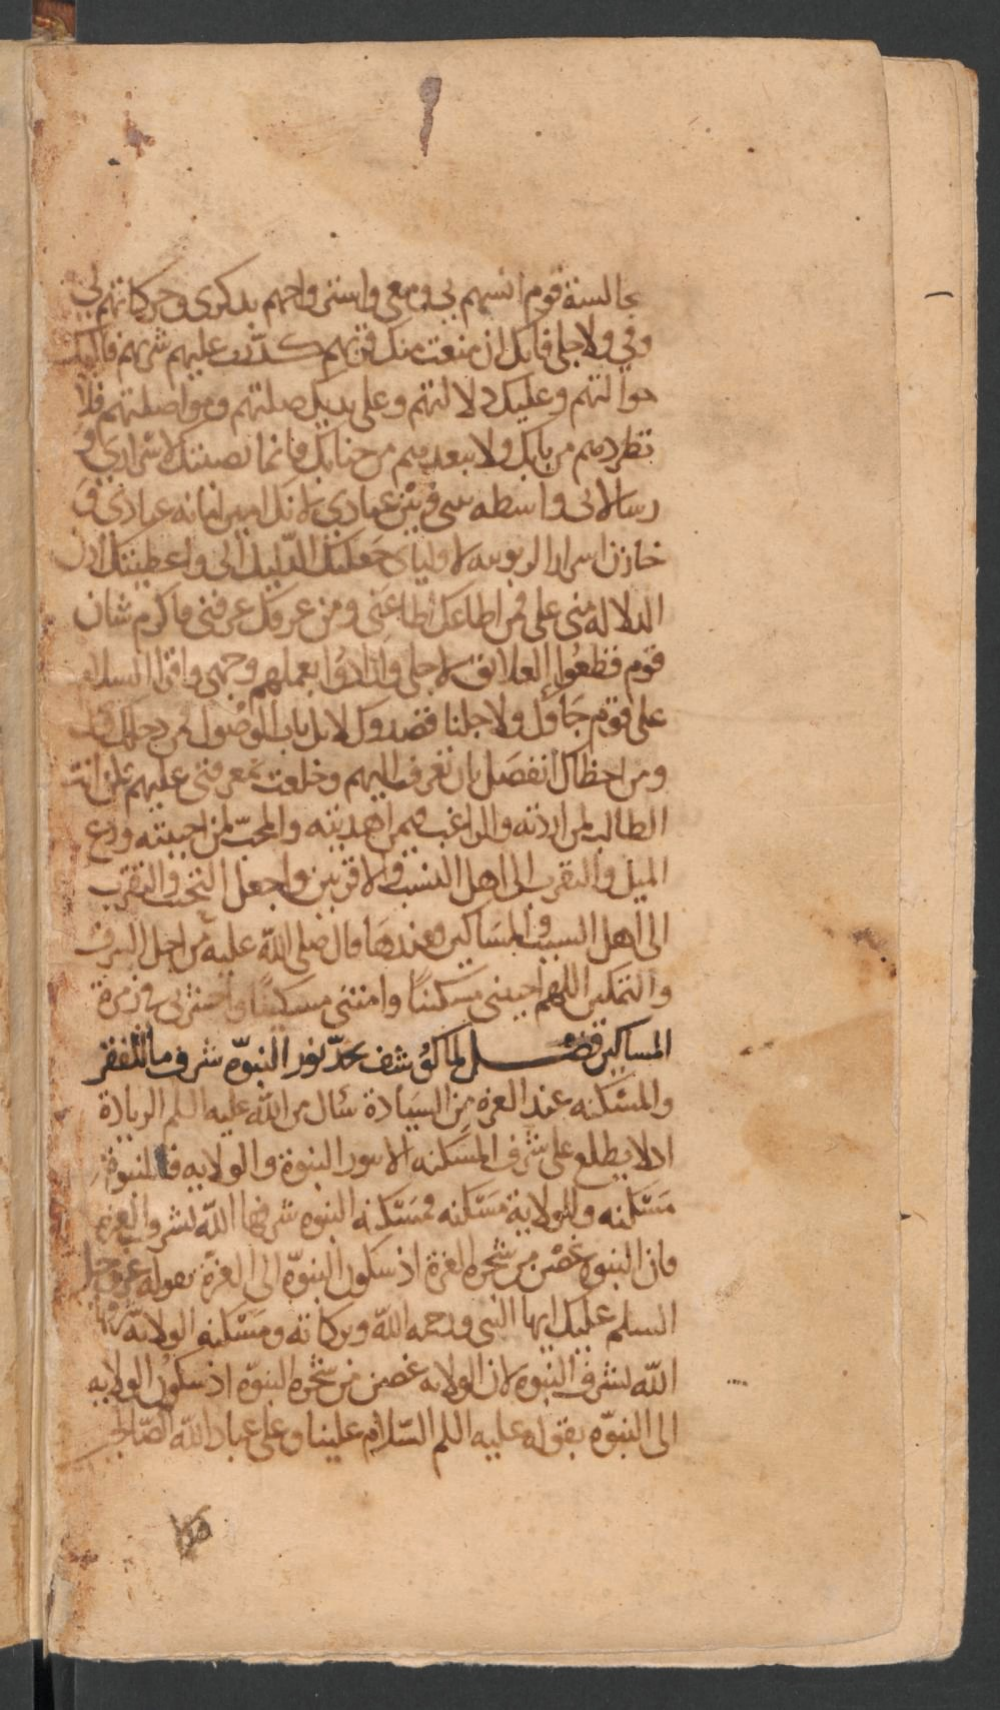 مجالسة قوم انسهم بي ومعي واستراحهم بذكري وحركاتهم بي
وفي ولاجلي فانك ان منعت منك قربهم كدرت عليهم شربهم فاليك
حوالتهم وعليك دلالتهم وعلى يديك صلتهم ومواصلتهم فلا
تطردهم من بابك ولا تبعدهم من جنابك فانما نصبتك لاسراري و
رسالاتي واسطه بيني وبين عبادي لانك امين امانه عبادي و
خازن اسرار الربوبيه لاوليای جعلتك الدليل الي واعطيتك اذن
الدلاله مني علي فمن اطاعك اطاعني ومن عرفك عرفني فاكرم شان
قوم قطعوا العلايق لاجلي وارادوا بعملهم وجهي واقرا السلام
على قوم جاوك ولاجلنا قصدوك لانك باب الوصول
ومن اخطاك انفصل بان تعرف اليهم وخلعت بمعرفتي عليهم انت
الطالب لمن اردته والراغب فيمن اهديته والمحب لمن احببته ودع
الميل والتقرب الى اهل النسب والاقربين واجعل التحبب والتقرب
الى اهل السبب والمساكين وعندها قال صلى الله عليه من اجل الشرف
والتمكين اللهم احيني مسكينا وامتني مسكينا واحشرني في زمرة
المساكين فصل لما كوشف بحد نور النبوة شرف ما للفقر
والمسكنه عند العزه من السيادة سال من الله عليه السلم الزيادة
اذ لا يطلع على شرف المسكنه الا بنور النبوة والولايه فللنبوة
مسكنه وللولاية مسكنه فمسكنه النبوه شرفها الله بشرف العزه
فان النبوه غصن من شجره العزة اذ سكون النبوة الى العزة بقوله عز وجل
السلم عليك ايها النبي ورحمه الله وبركاته ومسكنه الولايه شرفها
الله بشرف النبوه لان الولايه غصن من شجره النبوة اذ سكون الولايه
الى النبوة بقوله عليه السلم السلام علينا وعلى عباد الله الصالحين